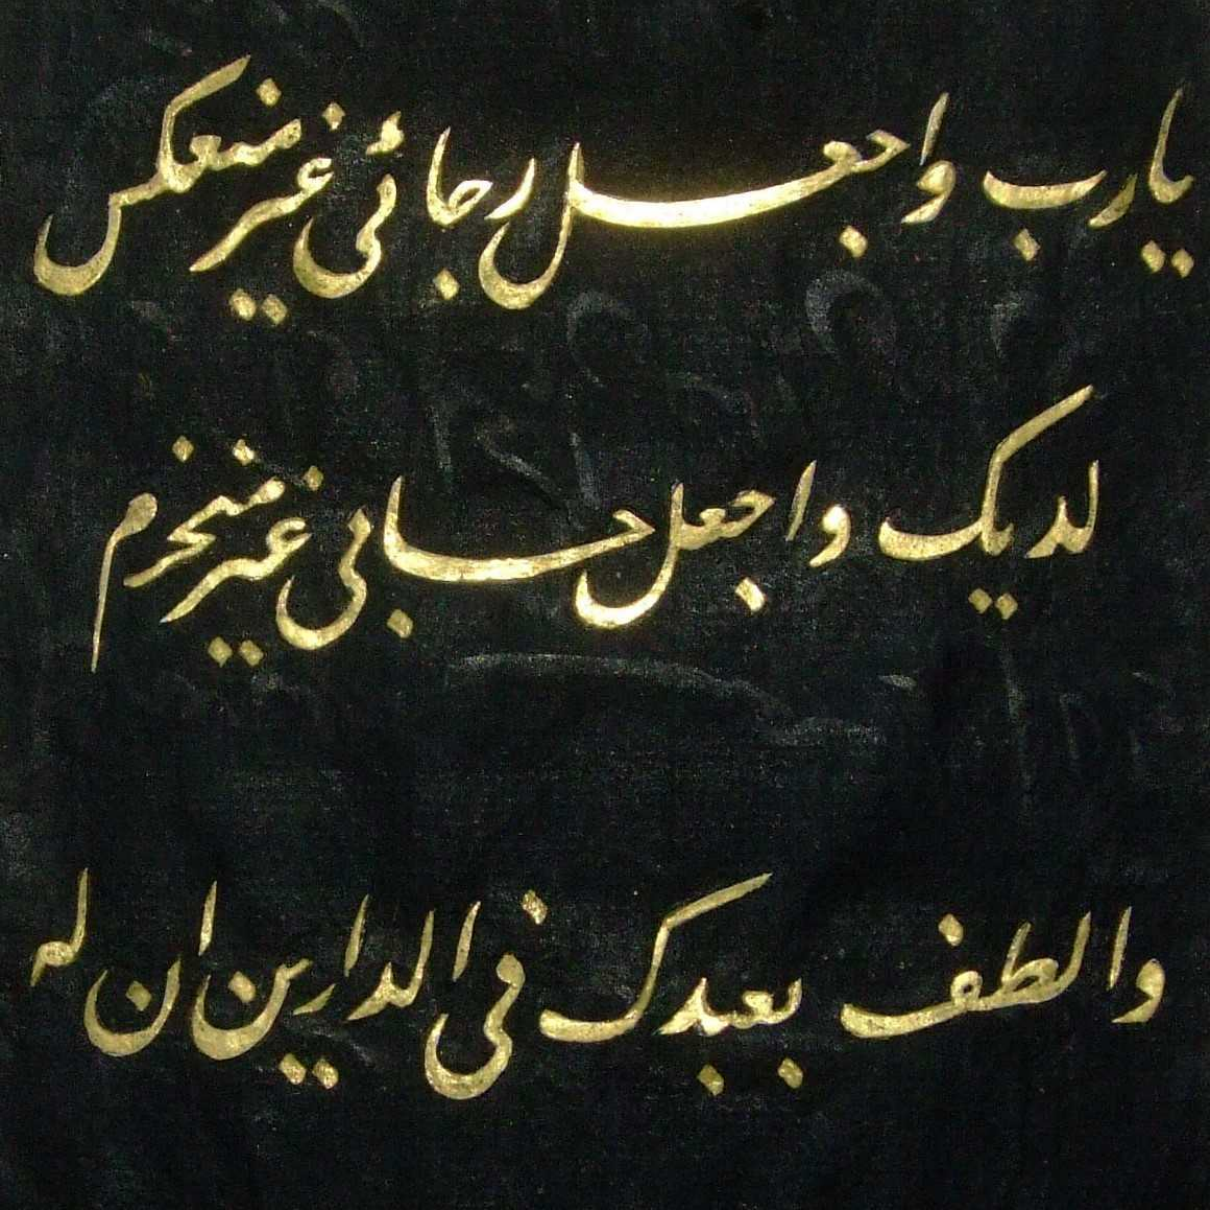 يا رب واجعل رجائي غير منعكس
لديك واجعل حسابي غير منخرم
والطف بعبدك في الدارين ان له